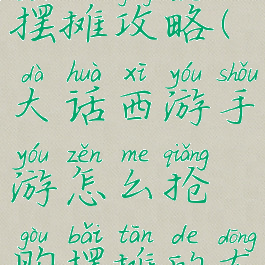 摆摊攻略(
dà huà xī yóu shǒu
大话西游手
yóu zěn me qiǎng
游怎么抢
gòu bǎi tān de dōng
购摆摊的东